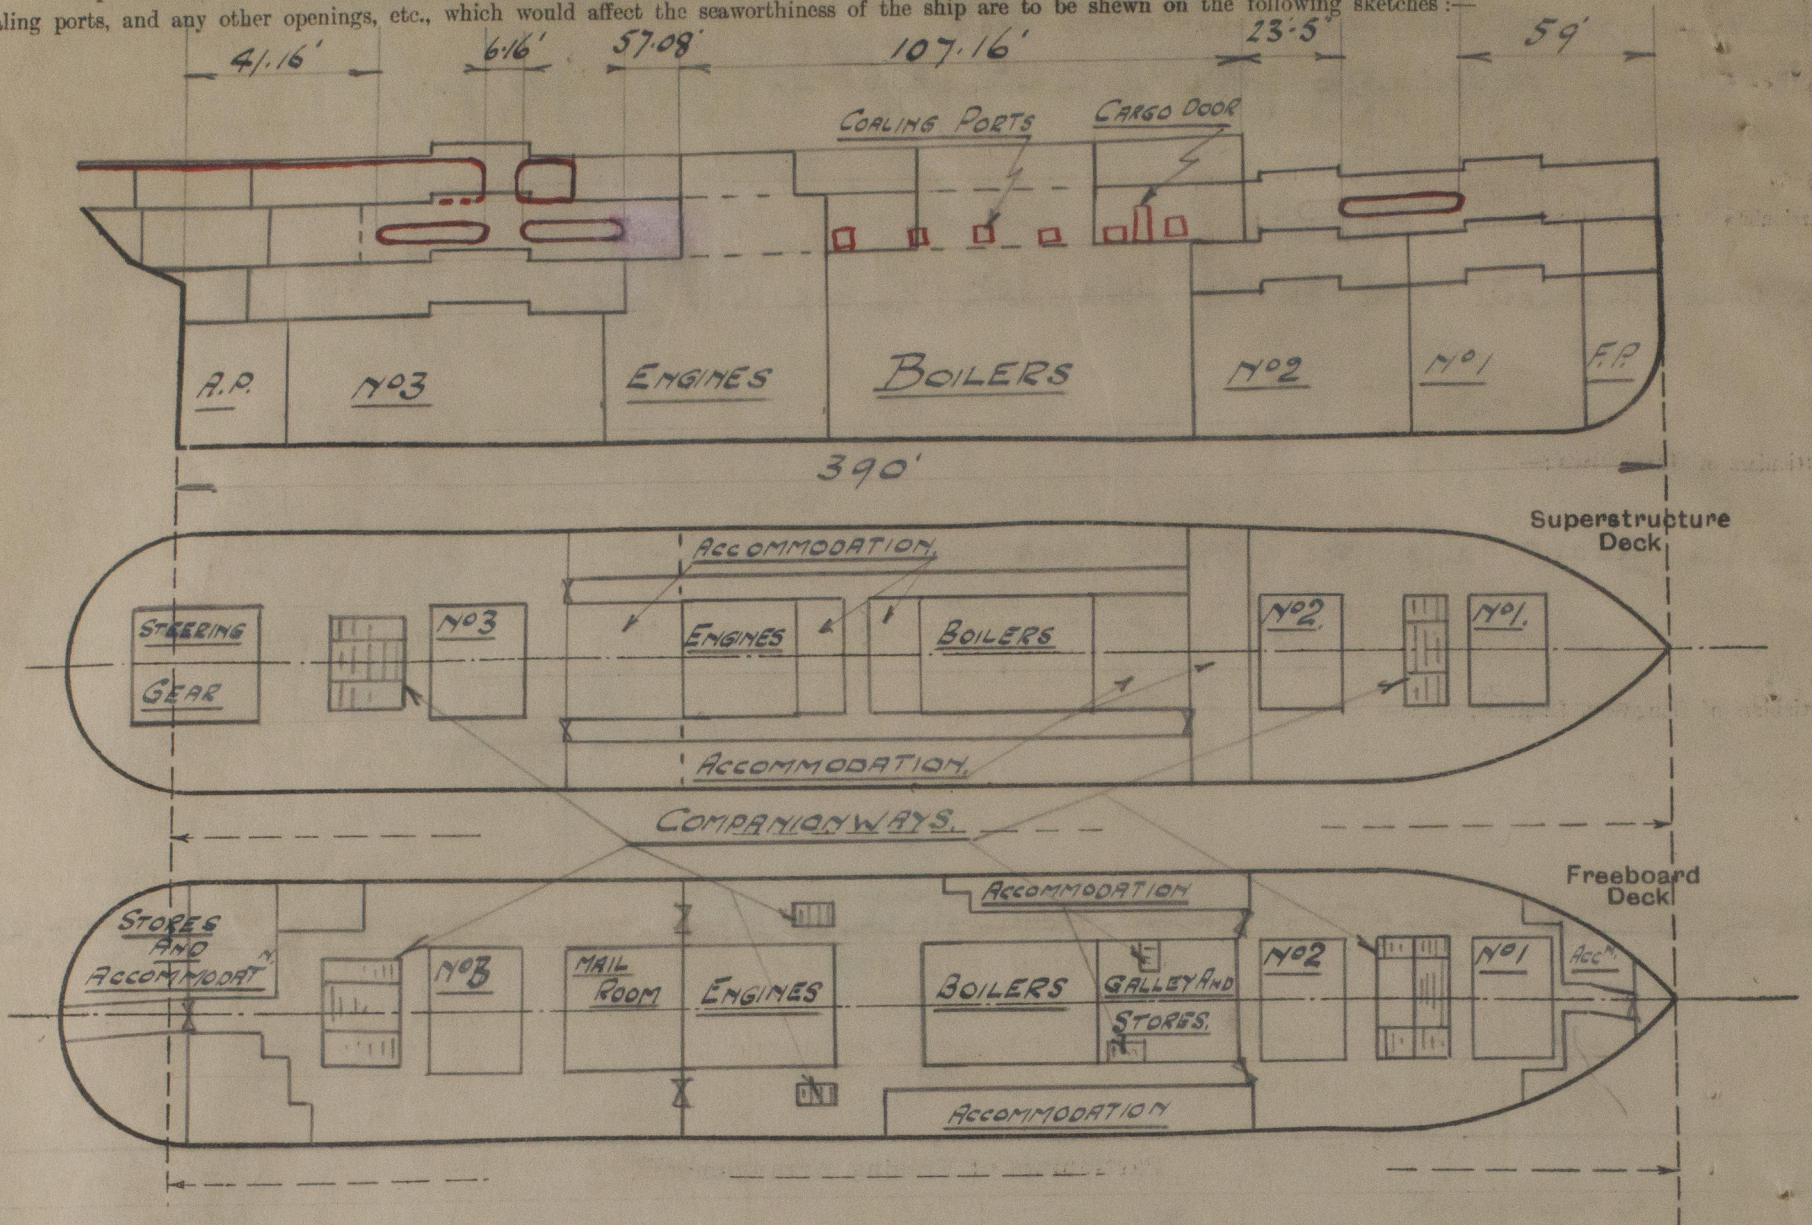 ling ports, and any other openings, etc., which would affect the seaworthiness of the ship are to be shewn on the following sketches :—
41.16' 6.16' 57.08' 107.16' 23.5' 59'
COALING PORTS CARGO DOOR
A.P. No3 ENGINES BOILERS No2 No1 F.P.
390'
Superstructure
Deck
ACCOMMODATION.
STEERING
GEAR
No3
ENGINES
BOILERS
No2.
No1.
ACCOMMODATION.
COMPANIONWAYS.
Freeboard
Deck
STORES
AND
ACCOMMODATN.
ACCOMMODATION
No3
MAIL
ROOM
ENGINES
BOILERS
GALLEY AND
STORES.
No2
No1
ACCN.
ACCOMMODATION